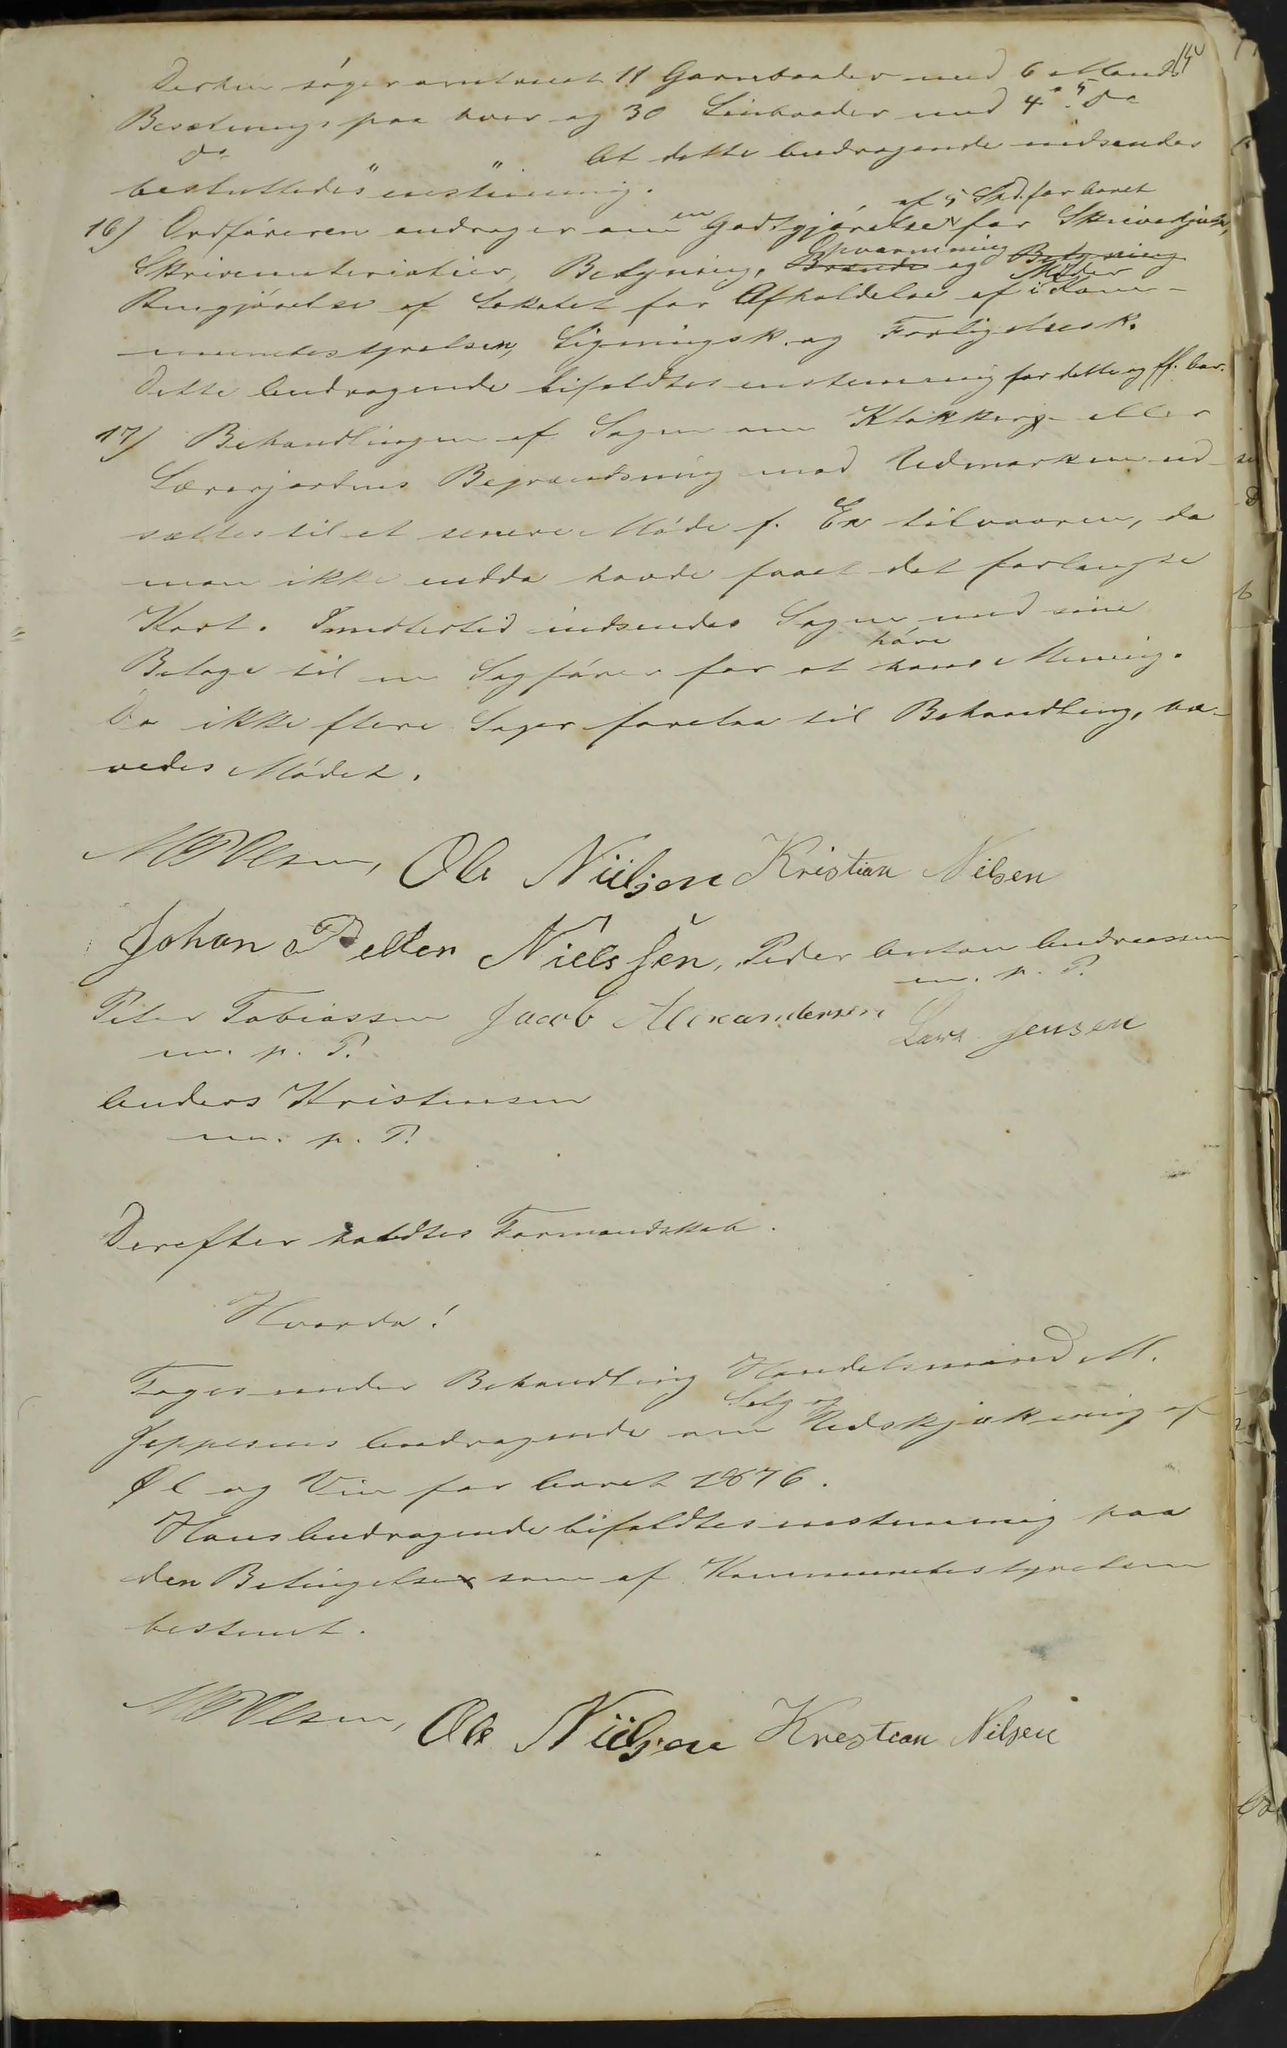 15
Derhen søger omtrent 11 Garnbaader med 6 Mands
Besætning paa hver og 30 Linbaader med 4 " Do
Do " " At dette Andragende indsendes
besluttedes enstemmig.
16) Ordføreren andrager om en Godtgjørelse af 5 Spd. for Aaret for Skriverhjælp,
Skrivematerialier, Belysning, Opvarmning og
Rengjørelse af Lokalet for Afholdelse af Møder i Kom-
munestyrelsen, Ligningsk. og Forligelsesk.
Dette Andragende bifaldtes enstemmig for dette og ff. Aar.
17) Behandlingen af Sagen om Klokker eller
Lærerjordens Begrændsning mod Udmarken ud-
sættes til et senere Møde f. Ex tilvaaren, da
man ikke endda havde faaet det forlangte
Kart. Imidlertid indsendes Sagen med sine
Bilage til en Sagfører for at høre hans Mening.
Da ikke flere Sager forelaa til Behandling, hæ-
vedes Mødet.
Olsen, Ole Nielsen Kristian Nilsen
Johan Petter Nielssen, Peder Anton Andreassen
m. p. P.
Peter Tobiassen Jacob Alexandersen Lars Jensen
m. p. P.
Anders Kristensen
m. p. P.
Derefter holdtes Formandskab.
Hvorda!
Toges under Behandling Handelsmand M.
Jeppesens Andragende om Salg og Udskjænkning af
Øl og Vin for Aaret 1876.
Hans Andragende bifaldtes enstemmig paa
den Betingelse som af Kommunestyrelsen
bestemt.
Olsen, Ole Nielsen Krestian Nilsen